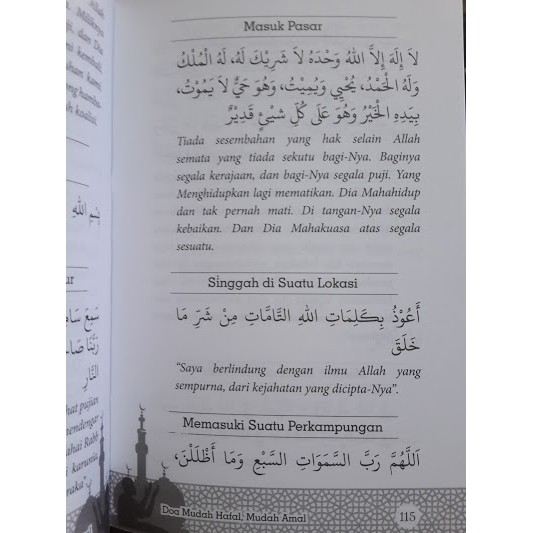 Allah
Miliknya
puji, dan Dia
kembali,
سَمِعَ سَامِـ
رَبَّنَا صَا
النَّارِ
بِسْمِ اللهِ
hat pujian
mendengar
ahai Rabb
karunia,
raka"
Masuk Pasar
لاَ إِلَهَ إِلاَّ اللهُ وَحْدَهُ لاَ شَرِيْكَ لَهُ، لَهُ الْمُلْكُ
وَلَهُ الْحَمْدُ، يُحْيِي وَيُمِيْتُ، وَهُوَ حَيٌّ لاَ يَمُوْتُ،
بِيَدِهِ الْخَيْرُ وَهُوَ عَلَى كُلِّ شَيْئٍ قَدِيْرٌ
Tiada sesembahan yang hak selain Allah
semata yang tiada sekutu bagi-Nya. Baginya
segala kerajaan, dan bagi-Nya segala puji. Yang
Menghidupkan lagi mematikan. Dia Mahahidup
dan tak pernah mati. Di tangan-Nya segala
kebaikan. Dan Dia Mahakuasa atas segala
sesuatu.
Singgah di Suatu Lokasi
أَعُوْذُ بِكَلِمَاتِ اللهِ التَّامَّاتِ مِنْ شَرِّ مَا
خَلَقَ
"Saya berlindung dengan ilmu Allah yang
sempurna, dari kejahatan yang dicipta-Nya".
Memasuki Suatu Perkampungan
اَللَّهُمَّ رَبَّ السَّمَوَاتِ السَّبْعِ وَمَا أَظْلَلْنَ،
Doa Mudah Hafal, Mudah Amal
115